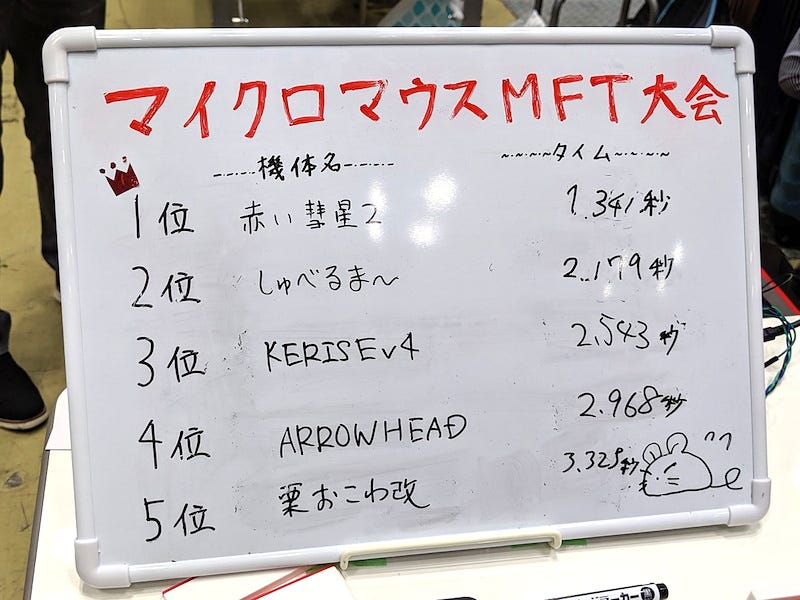 マイクロマウスMFT大会
-----機体名----- ~-~-~-タイム~-~-~-
1位 赤い彗星2 1.341秒
2位 しゅべるま~ 2.179秒
3位 KERISEv4 2.543秒
4位 ARROWHEAD 2.968秒
5位 栗おこわ改 3.325秒